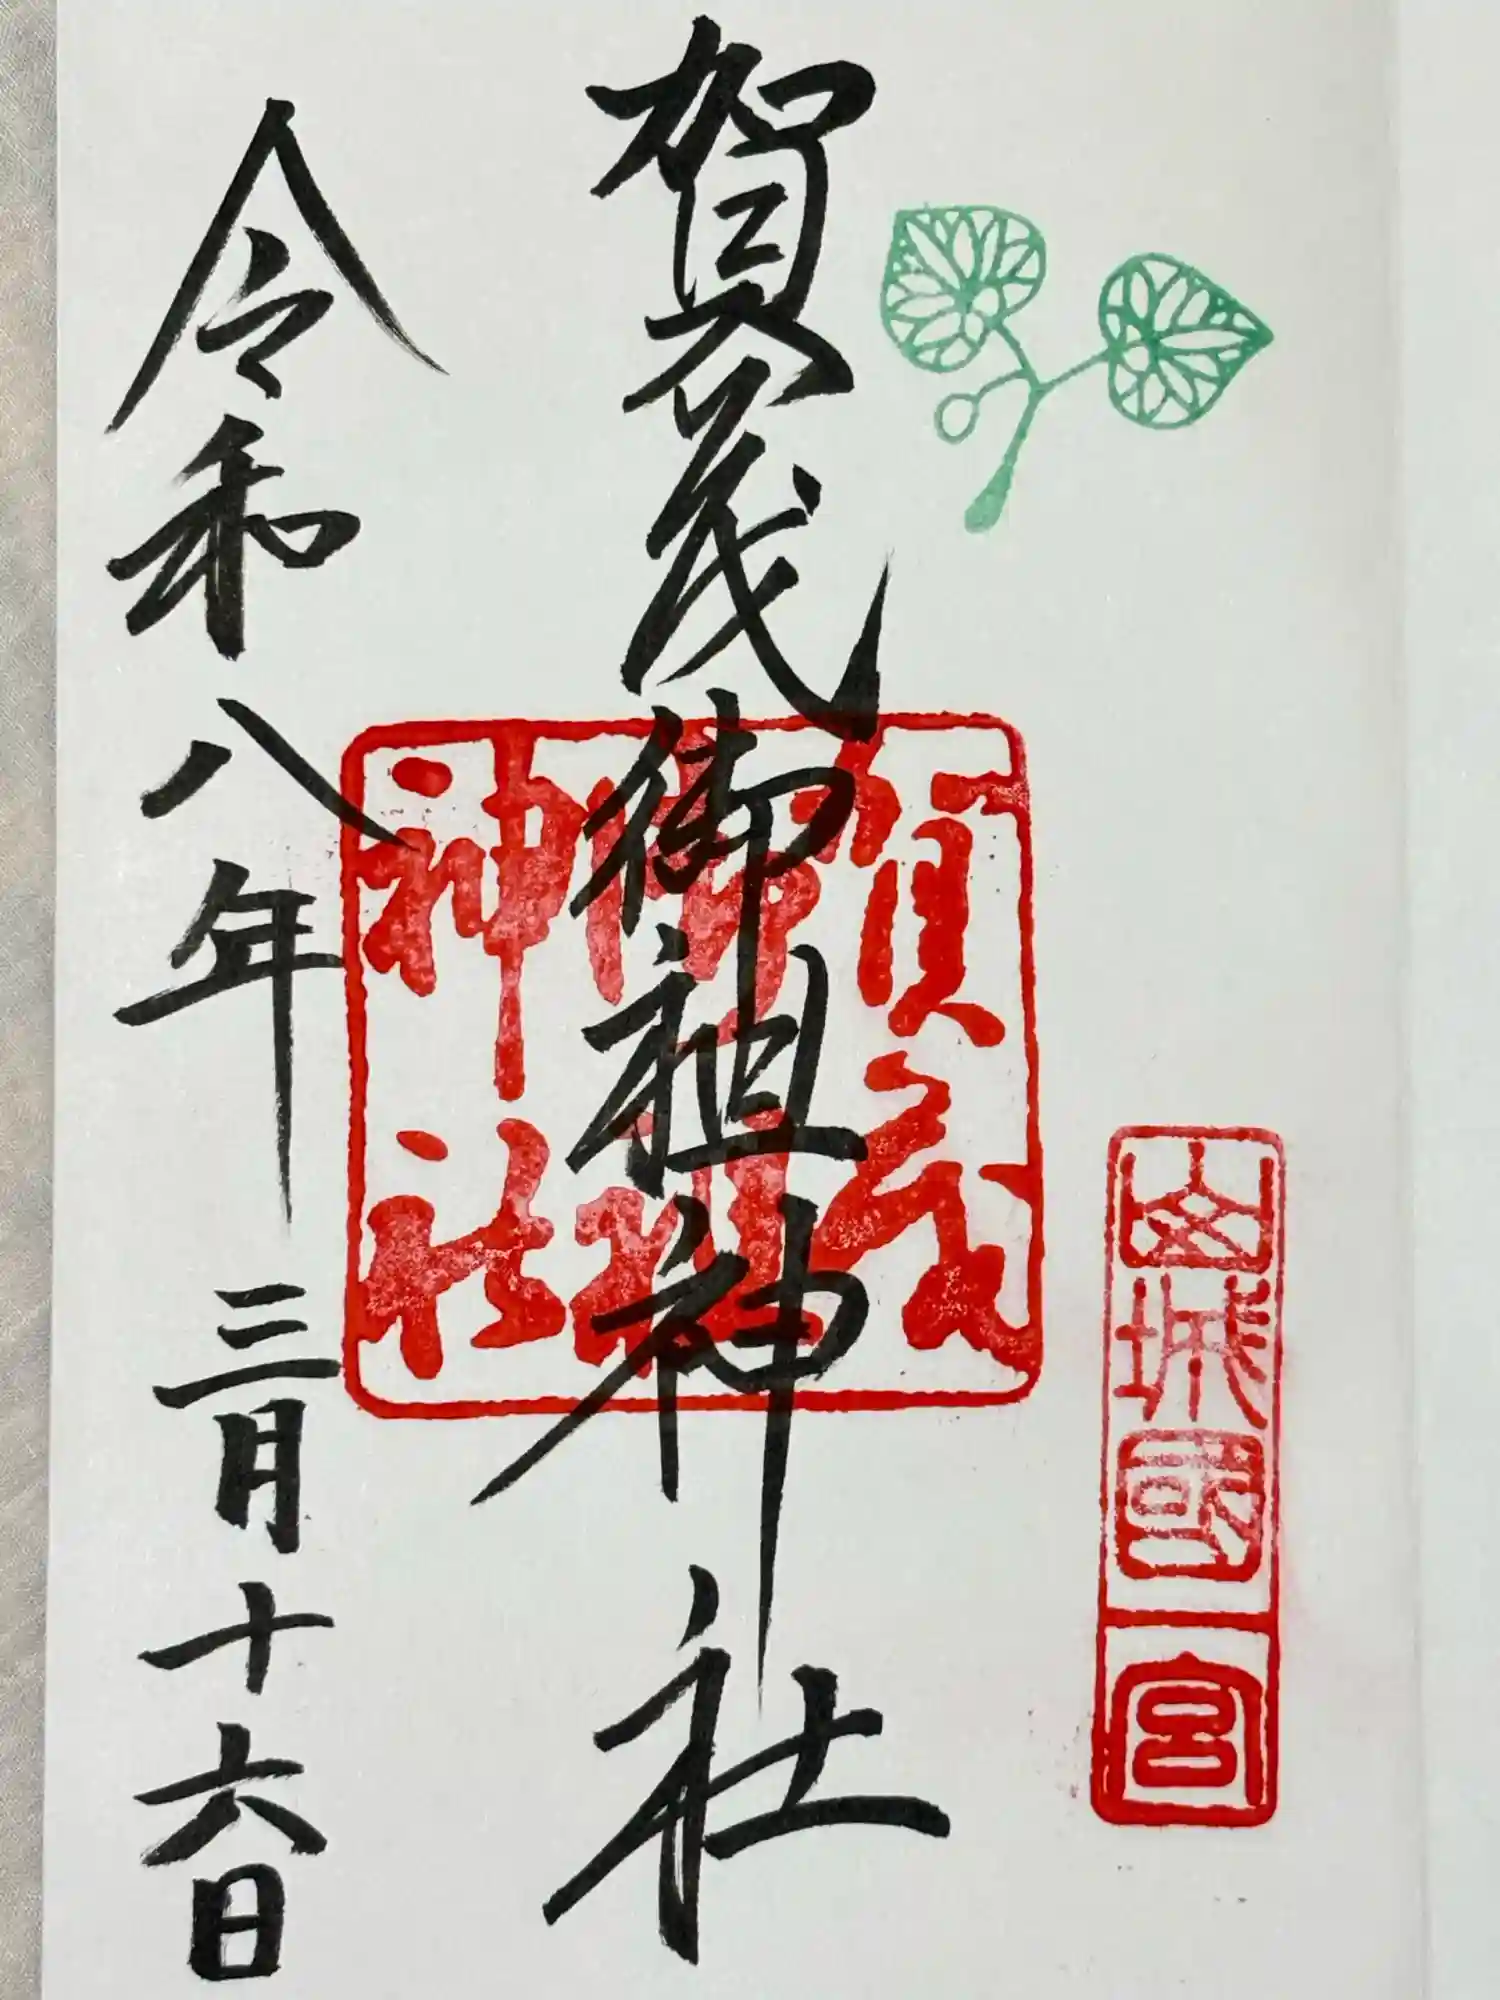 山城國
一宮
賀茂御祖神社
賀茂
御祖
神社
令和八年 三月十六日